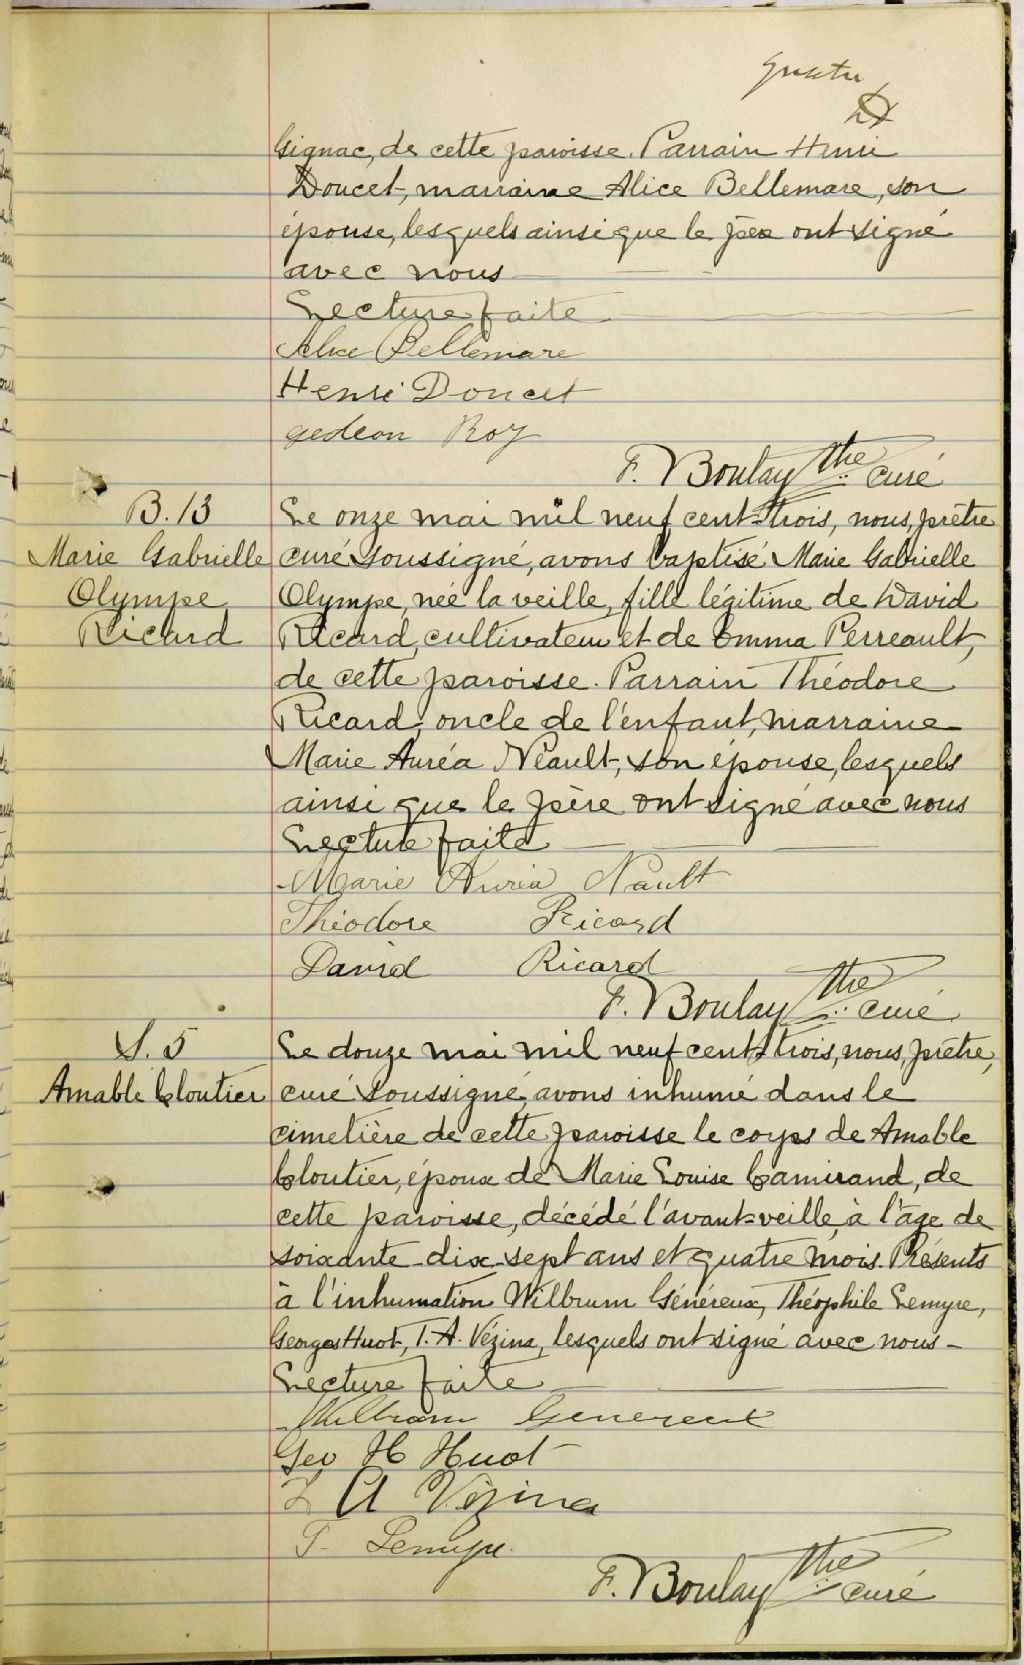 quatre
Gignac, de cette paroisse. Parrain Henri
Doucet, marraine Alice Bellemare, son
épouse, lesquels ainsi que le père ont signé
avec nous
Lecture faite
Alice Bellemare
Henri Doucet
gedeon Roy
F. Boulay ptre curé
B. 13
Marie Gabrielle
Olympe
Ricard
Le onze mai mil neuf cent trois, nous, prêtre
curé soussigné, avons baptisé Marie Gabrielle
Olympe, née la veille, fille légitime de David
Ricard, cultivateur et de Emma Perreault,
de cette paroisse. Parrain Théodore
Ricard, oncle de l'enfant, marraine
Marie Auréa Néault, son épouse, lesquels
ainsi que le père ont signé avec nous
Lecture faite
Marie Auréa Nault
Théodore Ricard
David Ricard
F. Boulay ptre curé
S. 5
Amable Cloutier
Le douze mai mil neuf cent trois, nous, prêtre,
curé soussigné, avons inhumé dans le
cimetière de cette paroisse le corps de Amable
Cloutier, époux de Marie Louise Camirand, de
cette paroisse, décédé l'avant-veille, à l'âge de
soixante-dix-sept ans et quatre mois. Présents
à l'inhumation Wilbrum Généreux, Théophile Lemyre,
Georges Huot, T. A. Vézina, lesquels ont signé avec nous -
Lecture faite
Wilbram Genereux
Geo H Huot
A Vézina
T. Lemyre.
F. Boulay ptre curé